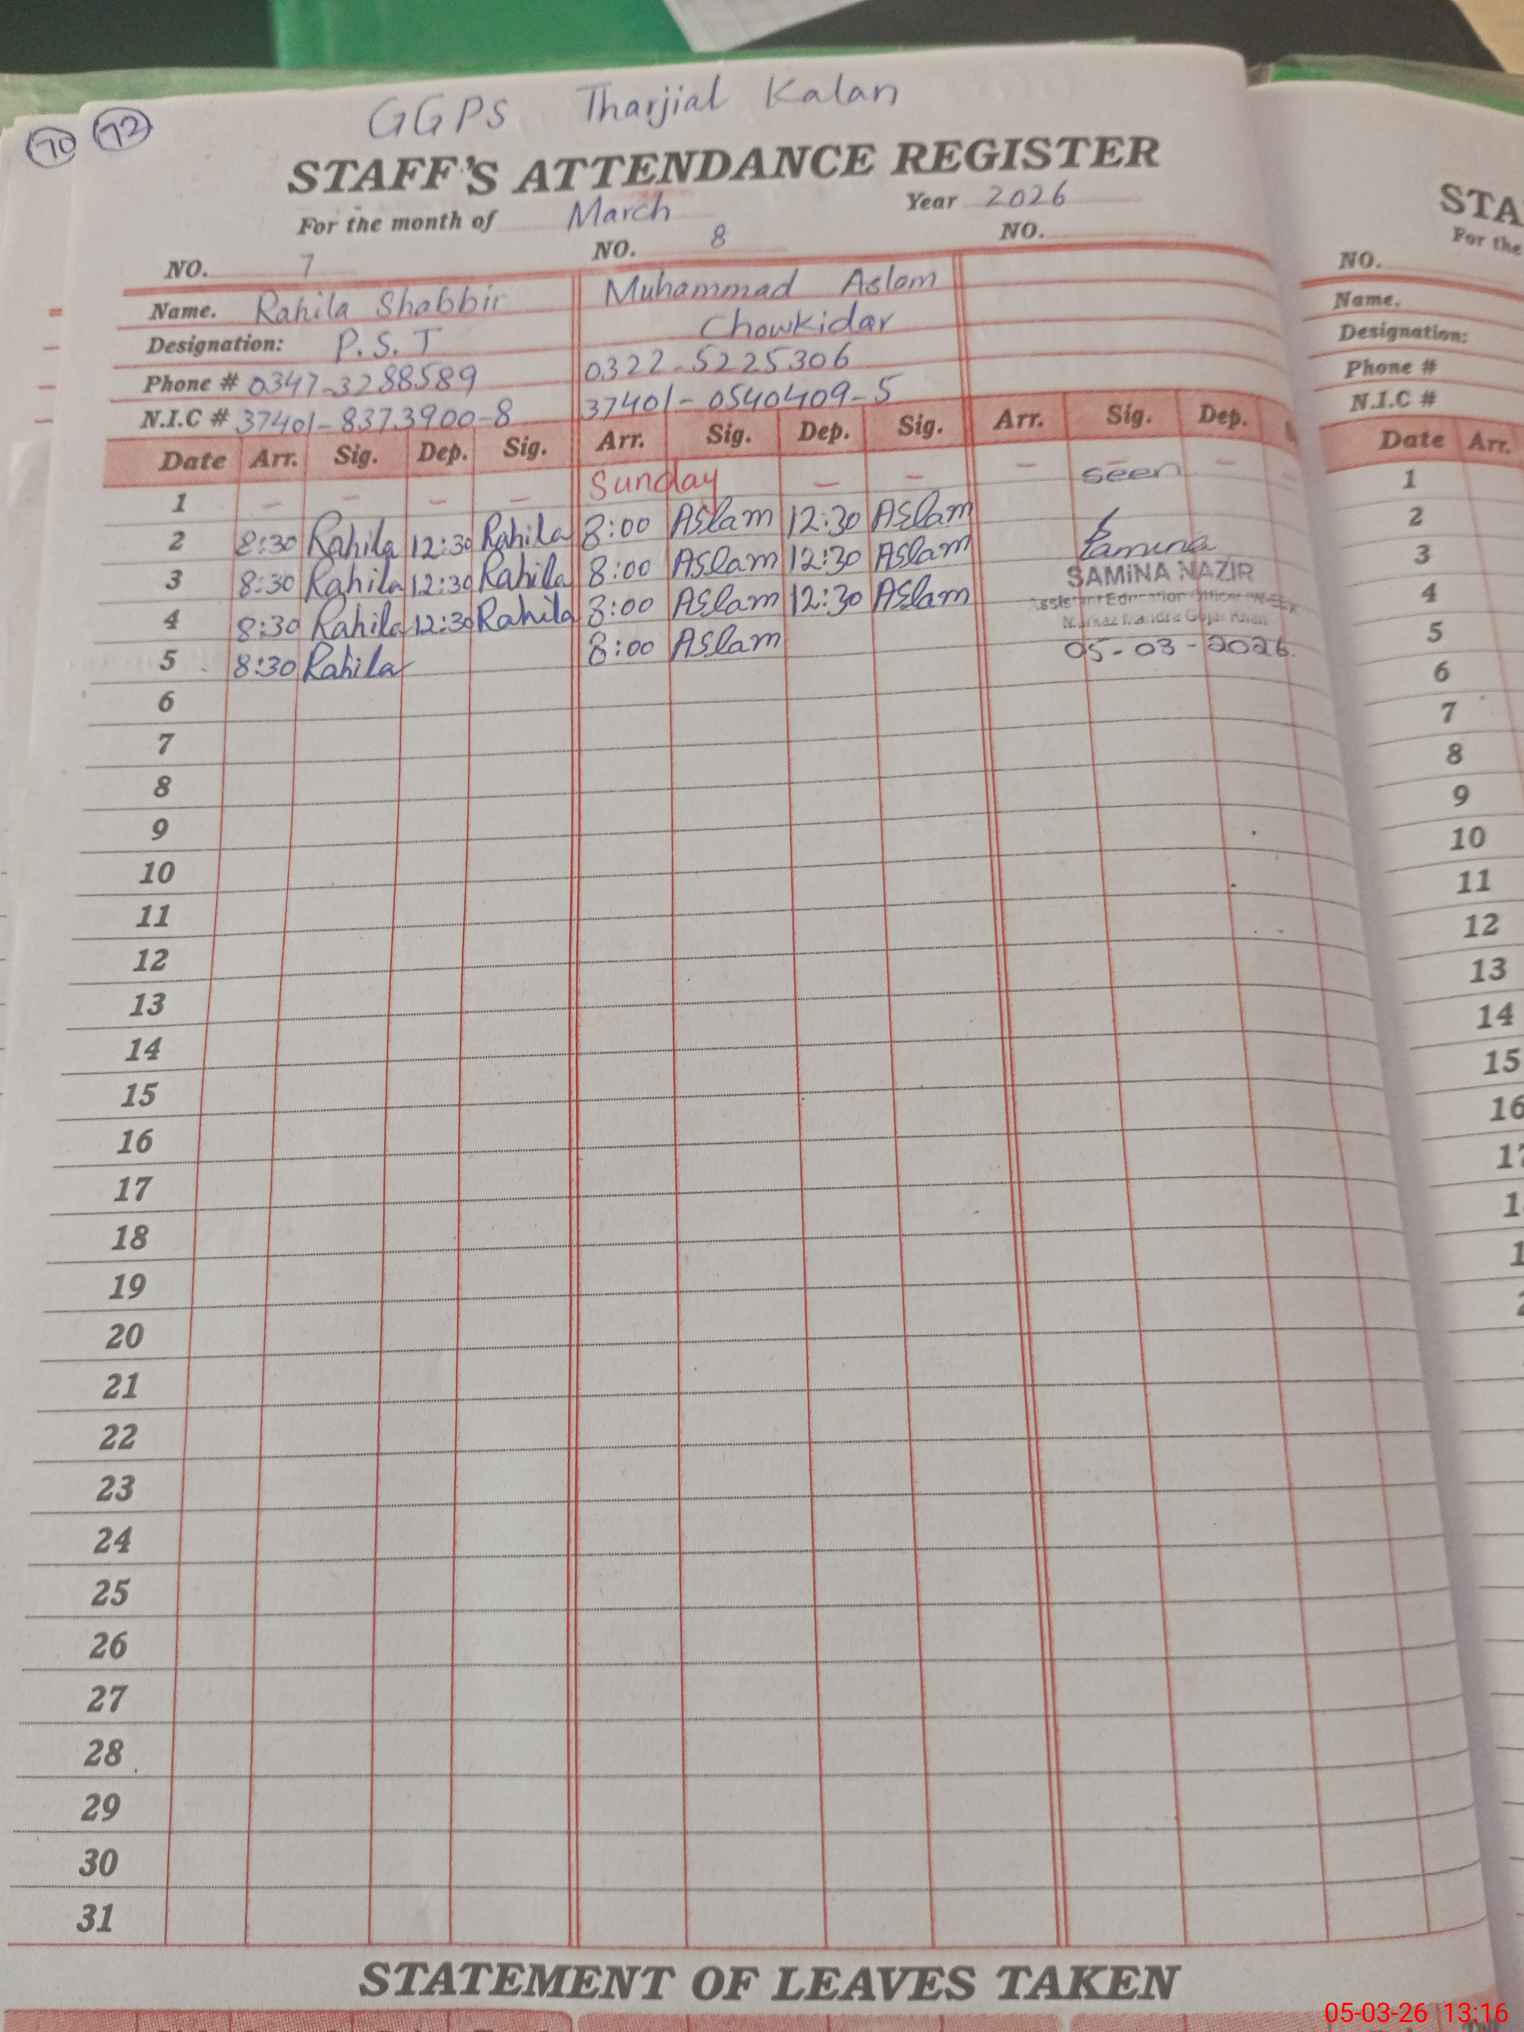 70 72
GGPS Tharjial Kalan
STAFF'S ATTENDANCE REGISTER
For the month of March Year 2026
NO. 7 NO. 8 NO.
Name. Rahila Shabbir Muhammad Aslam
Designation: P.S.T Chowkidar
Phone # 0347-3288589 0322-5225306
N.I.C # 37401-8373900-8 37401-0540409-5
Date Arr. Sig. Dep. Sig. Arr. Sig. Dep. Sig. Arr. Sig. Dep.
1 - - - - Sunday - - - seen -
2 8:30 Rahila 12:30 Rahila 8:00 Aslam 12:30 Aslam
3 8:30 Rahila 12:30 Rahila 8:00 Aslam 12:30 Aslam Samina
SAMINA NAZIR
4 8:30 Rahila 12:30 Rahila 8:00 Aslam 12:30 Aslam
Assistant Education Officer
Gujar Khan
5 8:30 Rahila 8:00 Aslam 05-03-2026.
6
7
8
9
10
11
12
13
14
15
16
17
18
19
20
21
22
23
24
25
26
27
28
29
30
31
STATEMENT OF LEAVES TAKEN
STA
For the
NO.
Name.
Designation:
Phone #
N.I.C #
Date Arr.
1
2
3
4
5
6
7
8
9
10
11
12
13
14
15
16
05-03-26 13:16